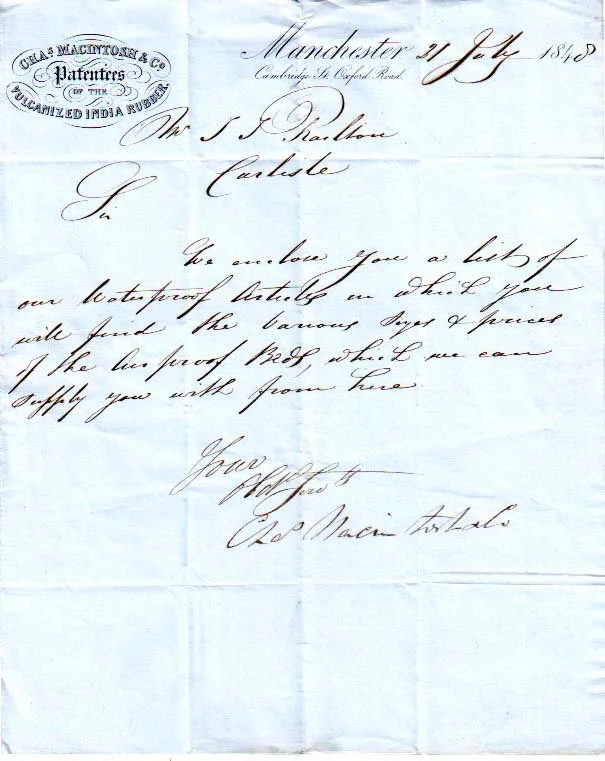 CHAS. MACINTOSH & CO.
Patentees
OF THE
VULCANIZED INDIA RUBBER.
Manchester 21 July 1848
Cambridge St. Oxford Road.
Mr J J Railton
Carlisle
Sir
We enclose you a list of
our Waterproof Articles in which you
will find the various Sizes & prices
of the Air proof Beds, which we can
supply you with from here
Your
Obdt Servts
Chas Macintosh & Co